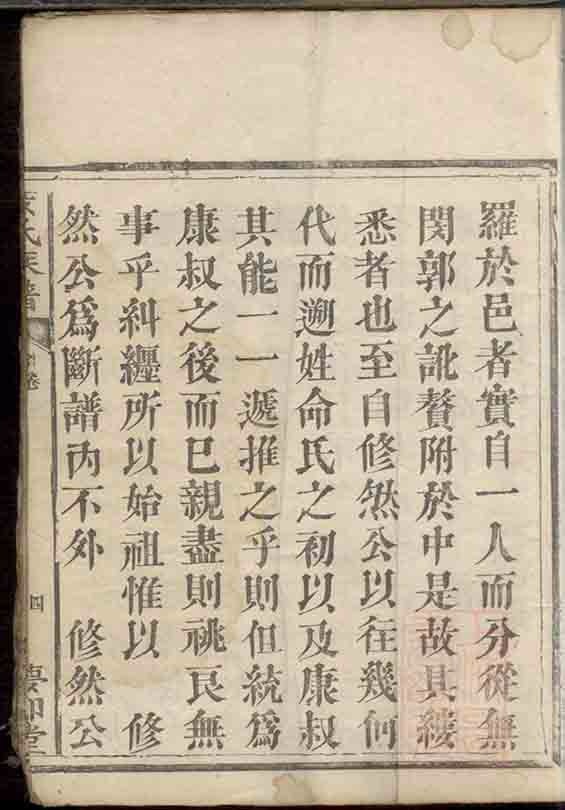 羅於邑者實自一人而分從無
閔郭之訛贅附於中是故其縷
悉者也至自修然公以往幾何
代而遡姓命氏之初以及康叔
其能一一遞推之乎則但統為
康叔之後而已親盡則祧良無
事乎糾纏所以始祖惟以 修
然公爲斷譜內不外 修然公
氏族譜
卷
四